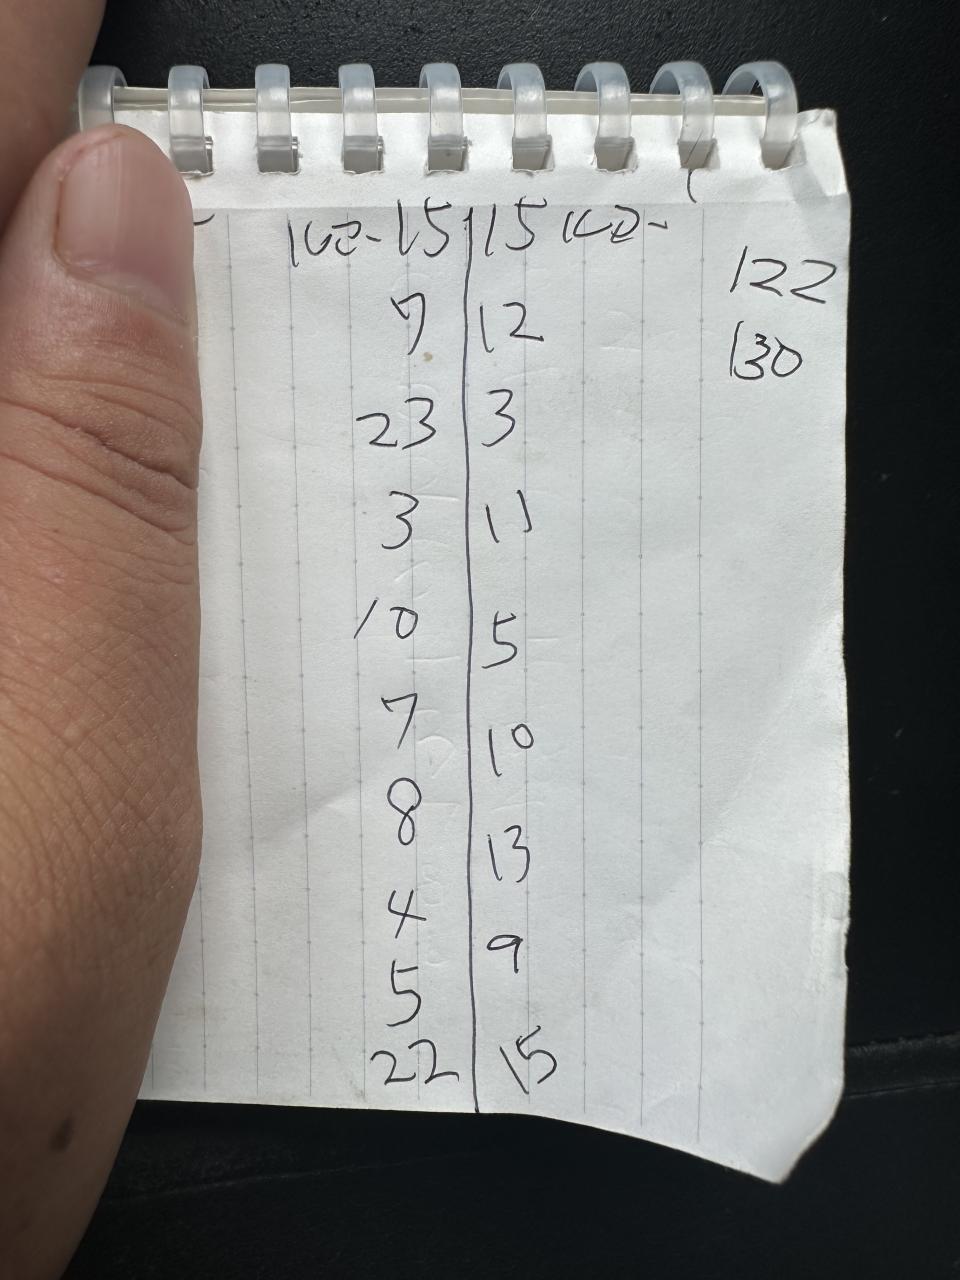 15 | 15
7 | 12
23 | 3
3 | 11
10 | 5
7 | 10
8 | 13
4 | 9
5
22 | 15
122
130